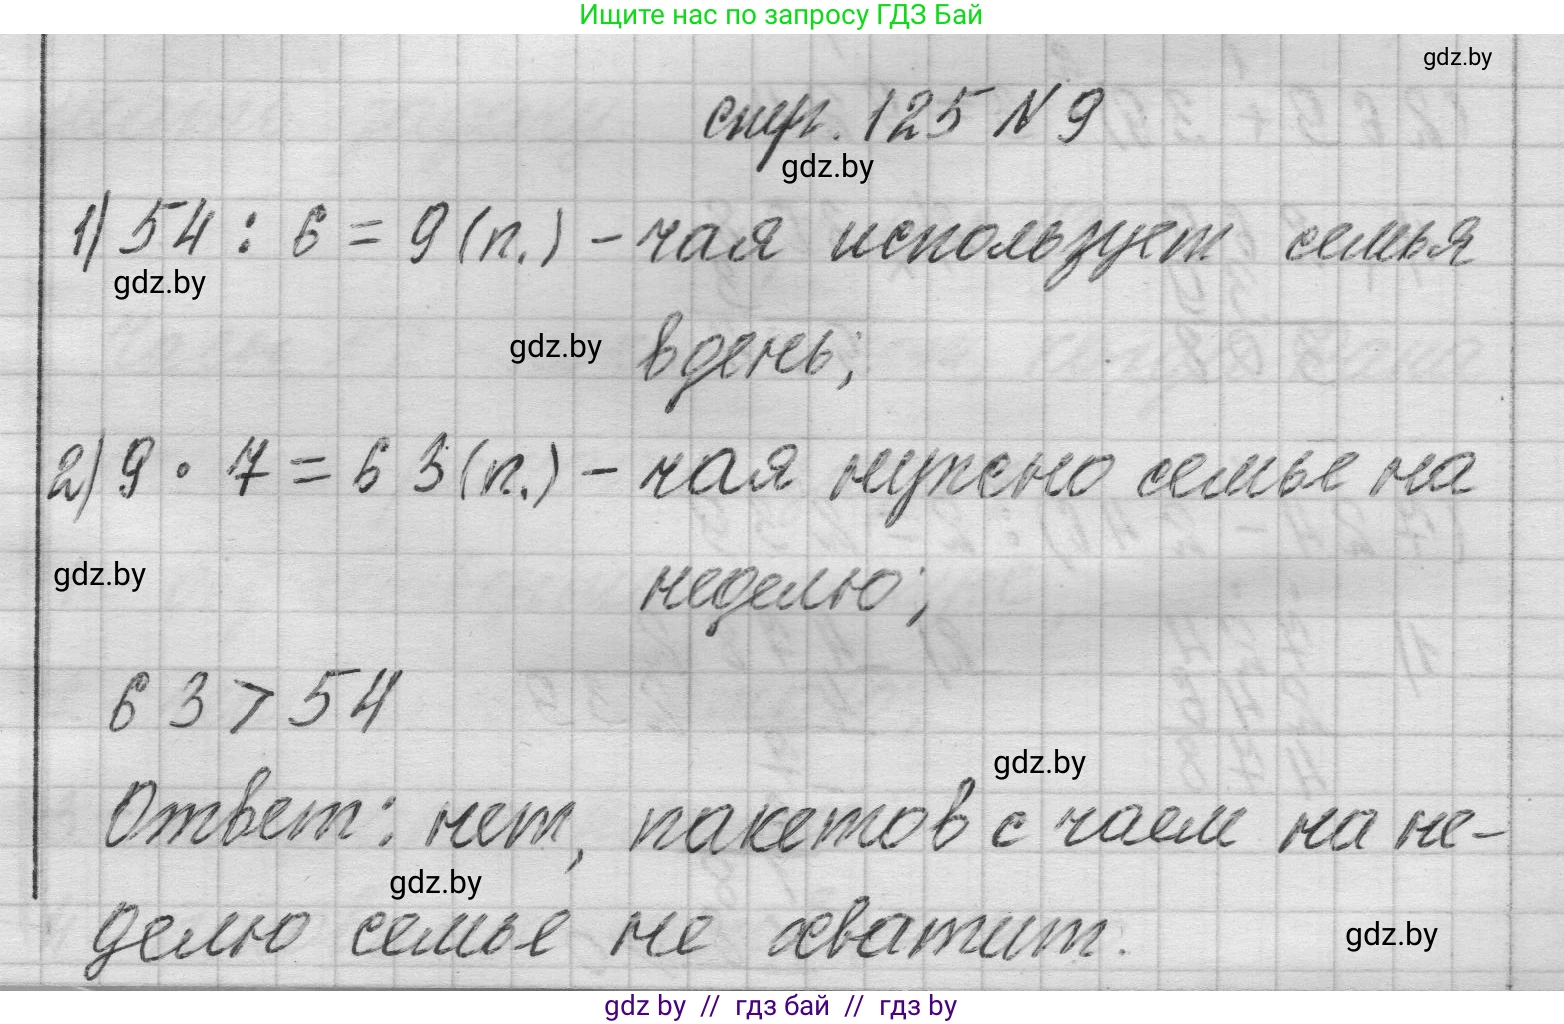 Ищите нас по запросу ГДЗ Бай
gdz.by
стр. 125 N 9
gdz.by
1) 54 : 6 = 9 (п.) - чая использует семья
gdz.by
gdz.by
в день;
2) 9 · 7 = 63 (п.) - чая нужно семье на
gdz.by
неделю;
63 > 54
gdz.by
Ответ: нет, пакетов с чаем на не-
gdz.by
делю семье не хватит.
gdz.by
gdz by // гдз бай // гдз by